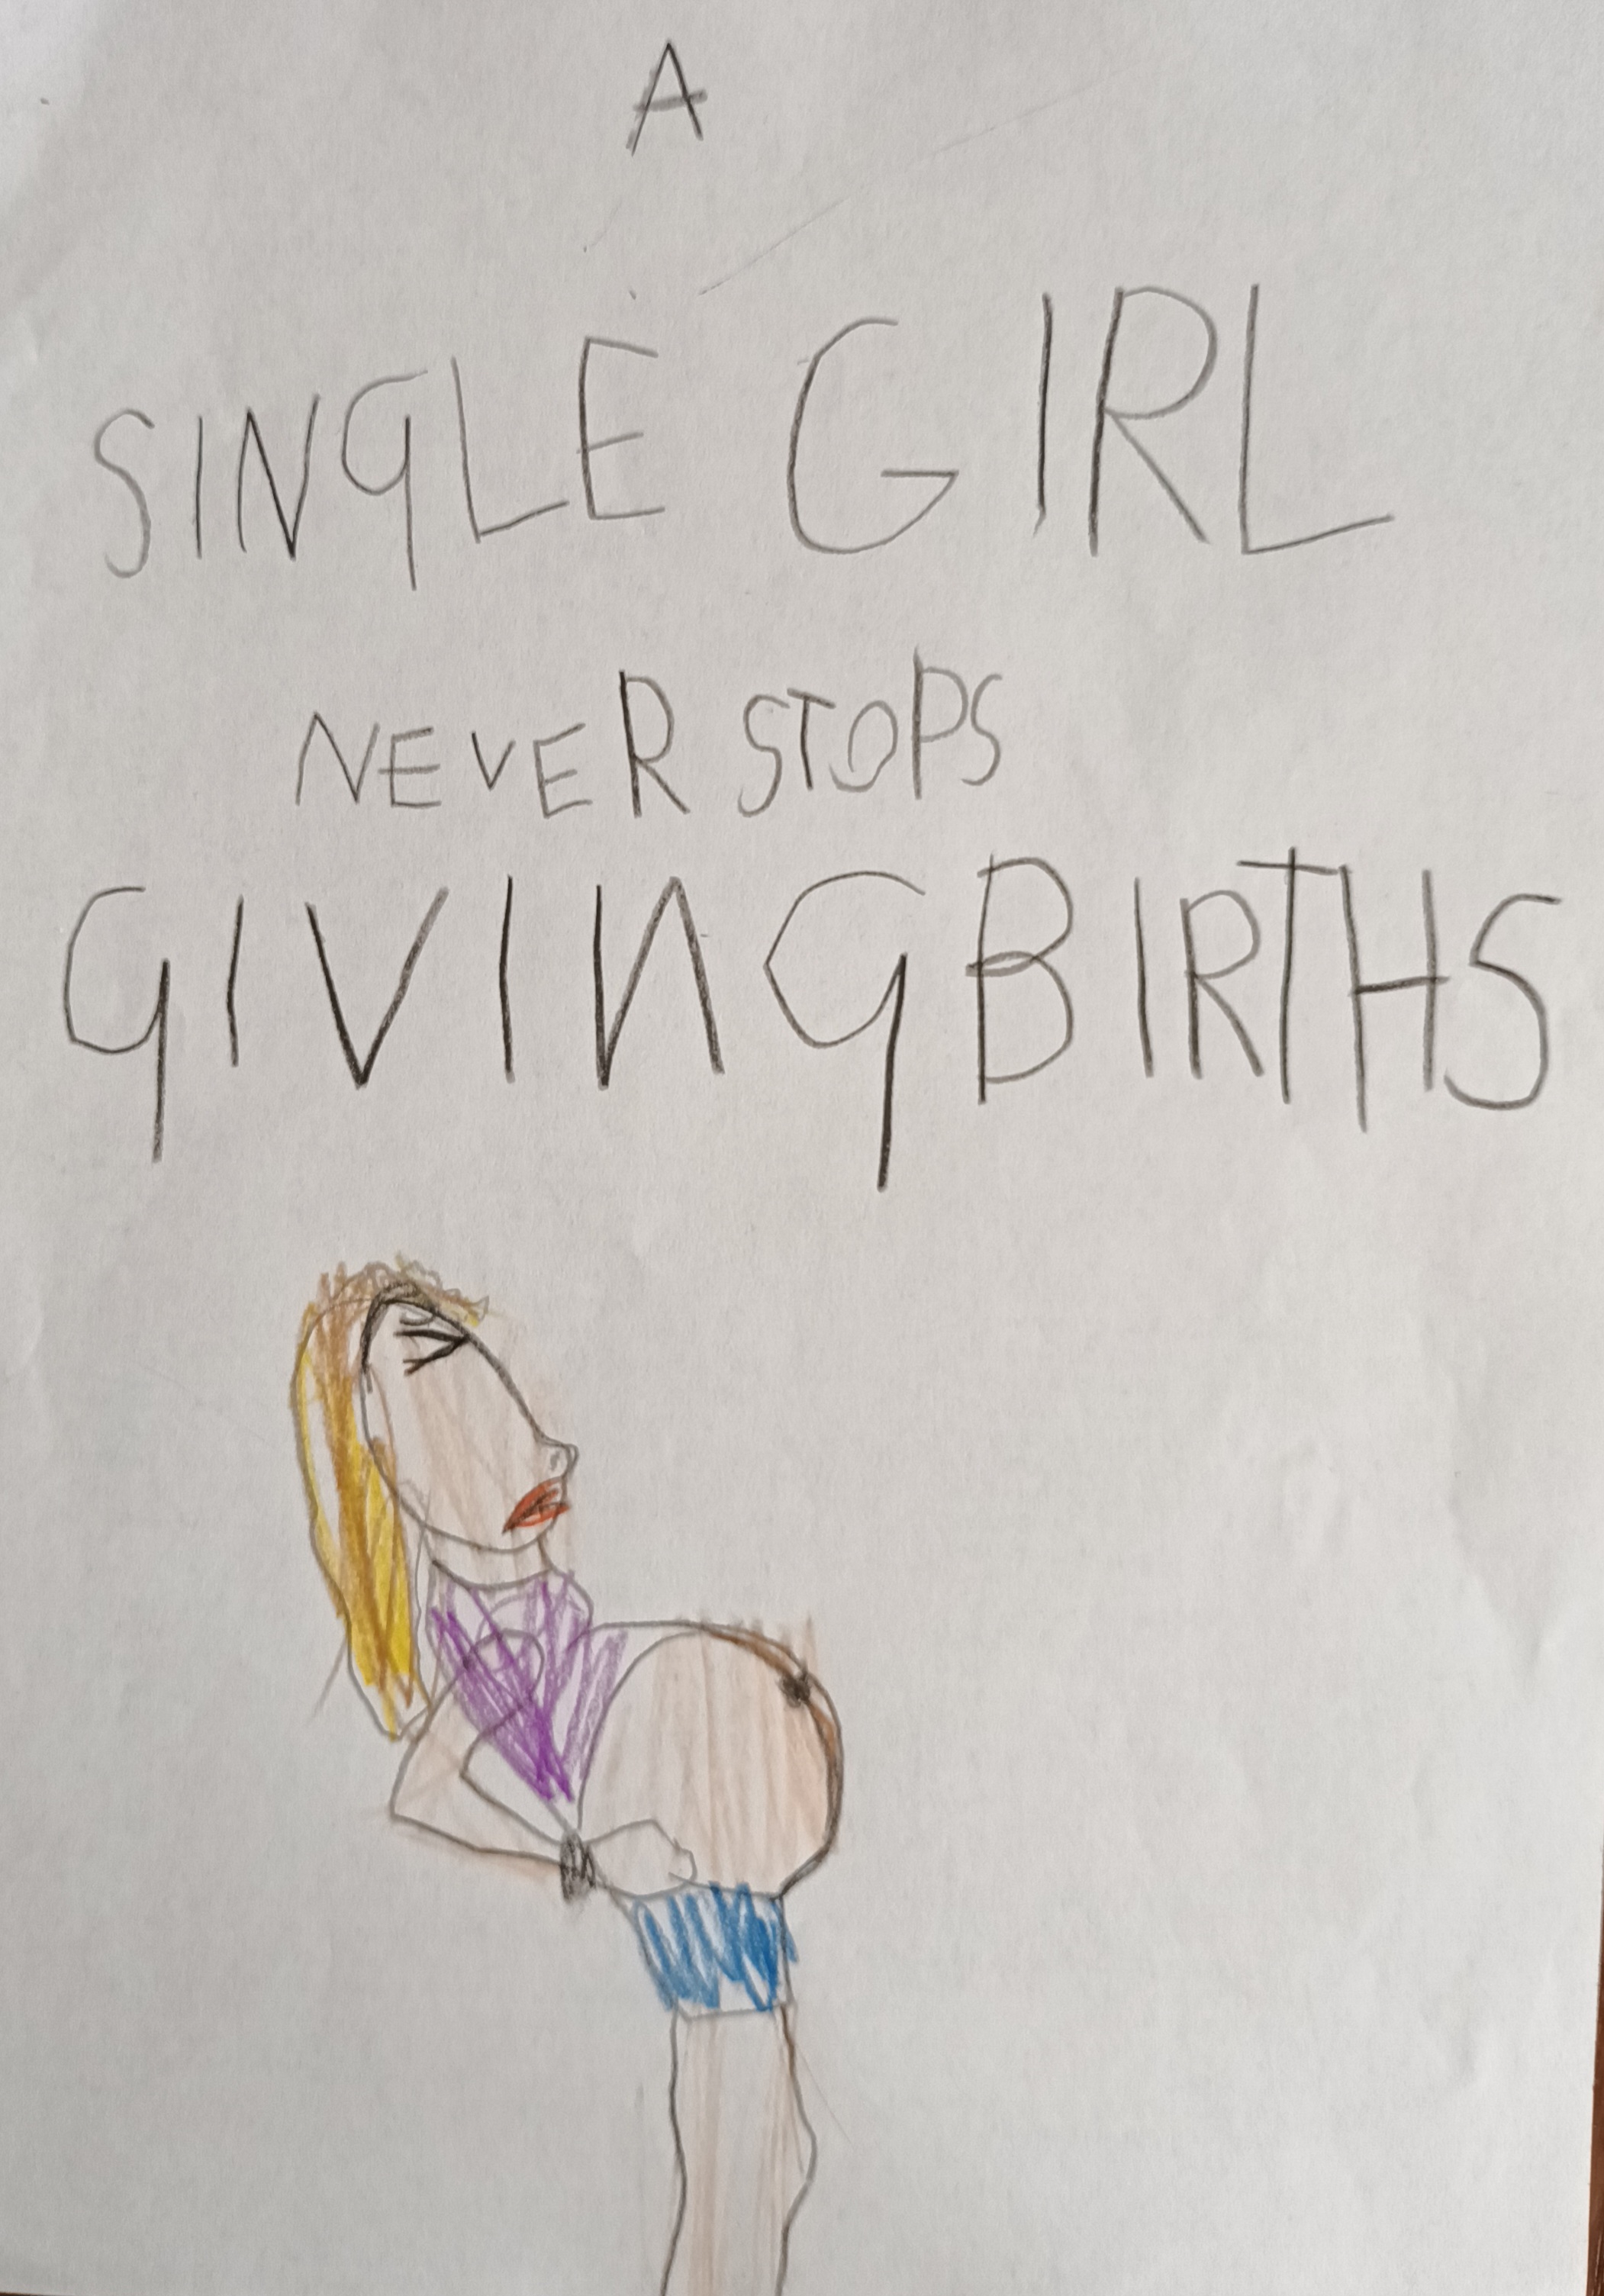 A
SINGLE GIRL
NEVER STOPS
GIVING BIRTHS